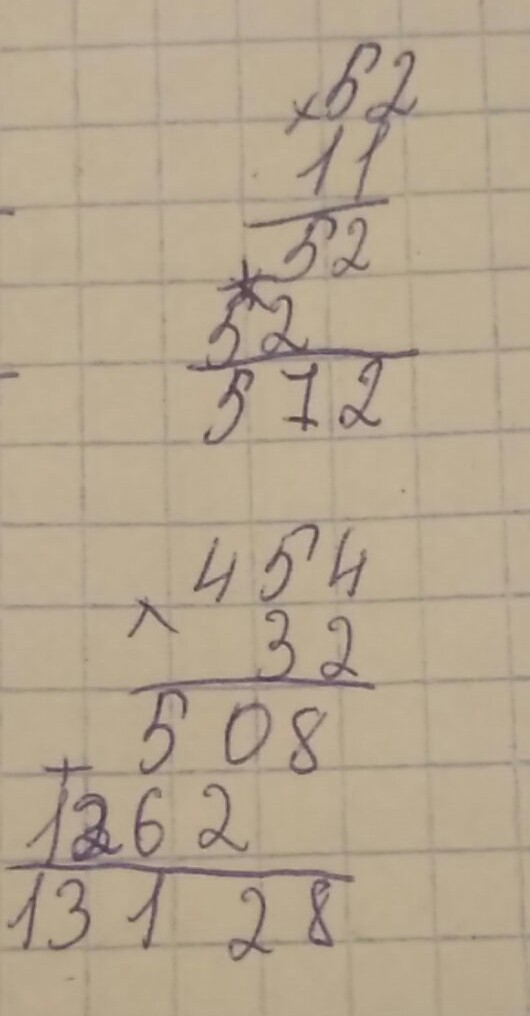 ×52
11
52
*
52
572
454
×
32
508
+
1262
13128